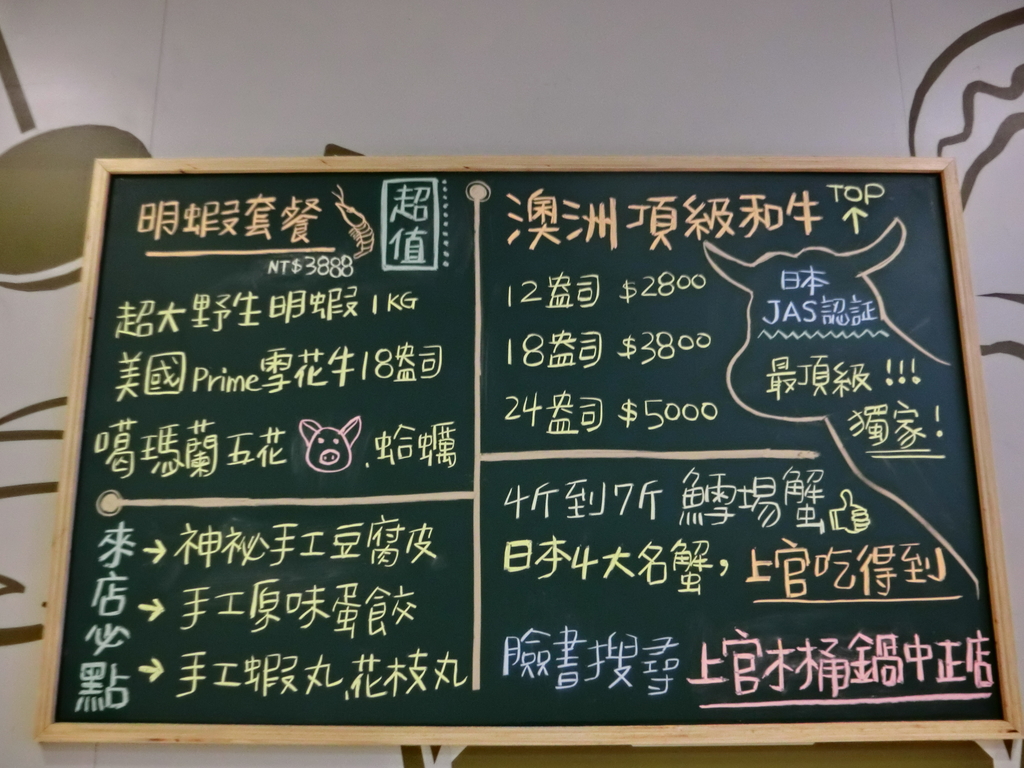 明蝦套餐
超值
NT$3888
超大野生明蝦 1KG
美國Prime雪花牛18盎司
噶瑪蘭五花 、蛤蠣
來店必點
→ 神祕手工豆腐皮
→ 手工原味蛋餃
→ 手工蝦丸、花枝丸
澳洲頂級和牛 TOP ↑
12盎司 $2800
18盎司 $3800
24盎司 $5000
日本
JAS認証
最頂級!!!
獨家!
4斤到7斤 鱈場蟹
日本4大名蟹,上官吃得到
臉書搜尋 上官木桶鍋中正店